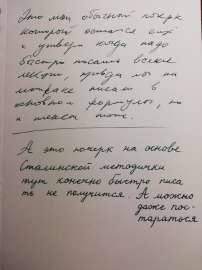 Это мой обычный почерк
который остался ещё
с универа когда надо
быстро писать всякие
лекции, правда мы на
матране писали в
основном формулы, но
и текст тоже.
А это почерк на основе
Сталинской методички
тут конечно быстро писа
ть не получится. А можно
даже пос-
тараться